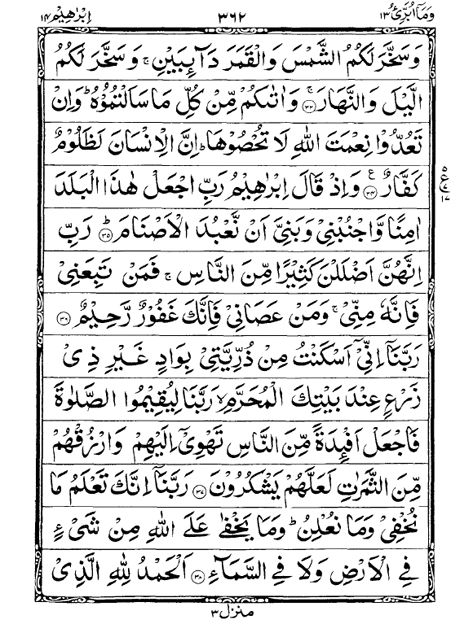 وَمَآ اُبَرِّئُ ۱۳ ۳۶۲ اِبْرٰهِيْم ۱۴
وَسَخَّرَ لَكُمُ الشَّمْسَ وَالْقَمَرَ دَآئِبَيْنِ ۚ وَسَخَّرَ لَكُمُ
الَّيْلَ وَالنَّهَارَ ۚ ﴿۳۳﴾ وَاٰتٰىكُمْ مِّنْ كُلِّ مَا سَاَلْتُمُوْهُ ؕ وَاِنْ
تَعُدُّوْا نِعْمَتَ اللّٰهِ لَا تُحْصُوْهَا ؕ اِنَّ الْاِنْسَانَ لَظَلُوْمٌ
كَفَّارٌ ﴿۳۴﴾ ع وَاِذْ قَالَ اِبْرٰهِيْمُ رَبِّ اجْعَلْ هٰذَا الْبَلَدَ
اٰمِنًا وَّاجْنُبْنِيْ وَبَنِيَّ اَنْ نَّعْبُدَ الْاَصْنَامَ ؕ ﴿۳۵﴾ رَبِّ
اِنَّهُنَّ اَضْلَلْنَ كَثِيْرًا مِّنَ النَّاسِ ۚ فَمَنْ تَبِعَنِيْ
فَاِنَّهٗ مِنِّيْ ۚ وَمَنْ عَصَانِيْ فَاِنَّكَ غَفُوْرٌ رَّحِيْمٌ ﴿۳۶﴾
رَبَّنَآ اِنِّيْٓ اَسْكَنْتُ مِنْ ذُرِّيَّتِيْ بِوَادٍ غَيْرِ ذِيْ
زَرْعٍ عِنْدَ بَيْتِكَ الْمُحَرَّمِ ۙ رَبَّنَا لِيُقِيْمُوا الصَّلٰوةَ
فَاجْعَلْ اَفْئِدَةً مِّنَ النَّاسِ تَهْوِيْٓ اِلَيْهِمْ وَارْزُقْهُمْ
مِّنَ الثَّمَرٰتِ لَعَلَّهُمْ يَشْكُرُوْنَ ﴿۳۷﴾ رَبَّنَآ اِنَّكَ تَعْلَمُ مَا
نُخْفِيْ وَمَا نُعْلِنُ ؕ وَمَا يَخْفٰى عَلَى اللّٰهِ مِنْ شَيْءٍ
فِي الْاَرْضِ وَلَا فِي السَّمَآءِ ﴿۳۸﴾ اَلْحَمْدُ لِلّٰهِ الَّذِيْ
منزل ۳